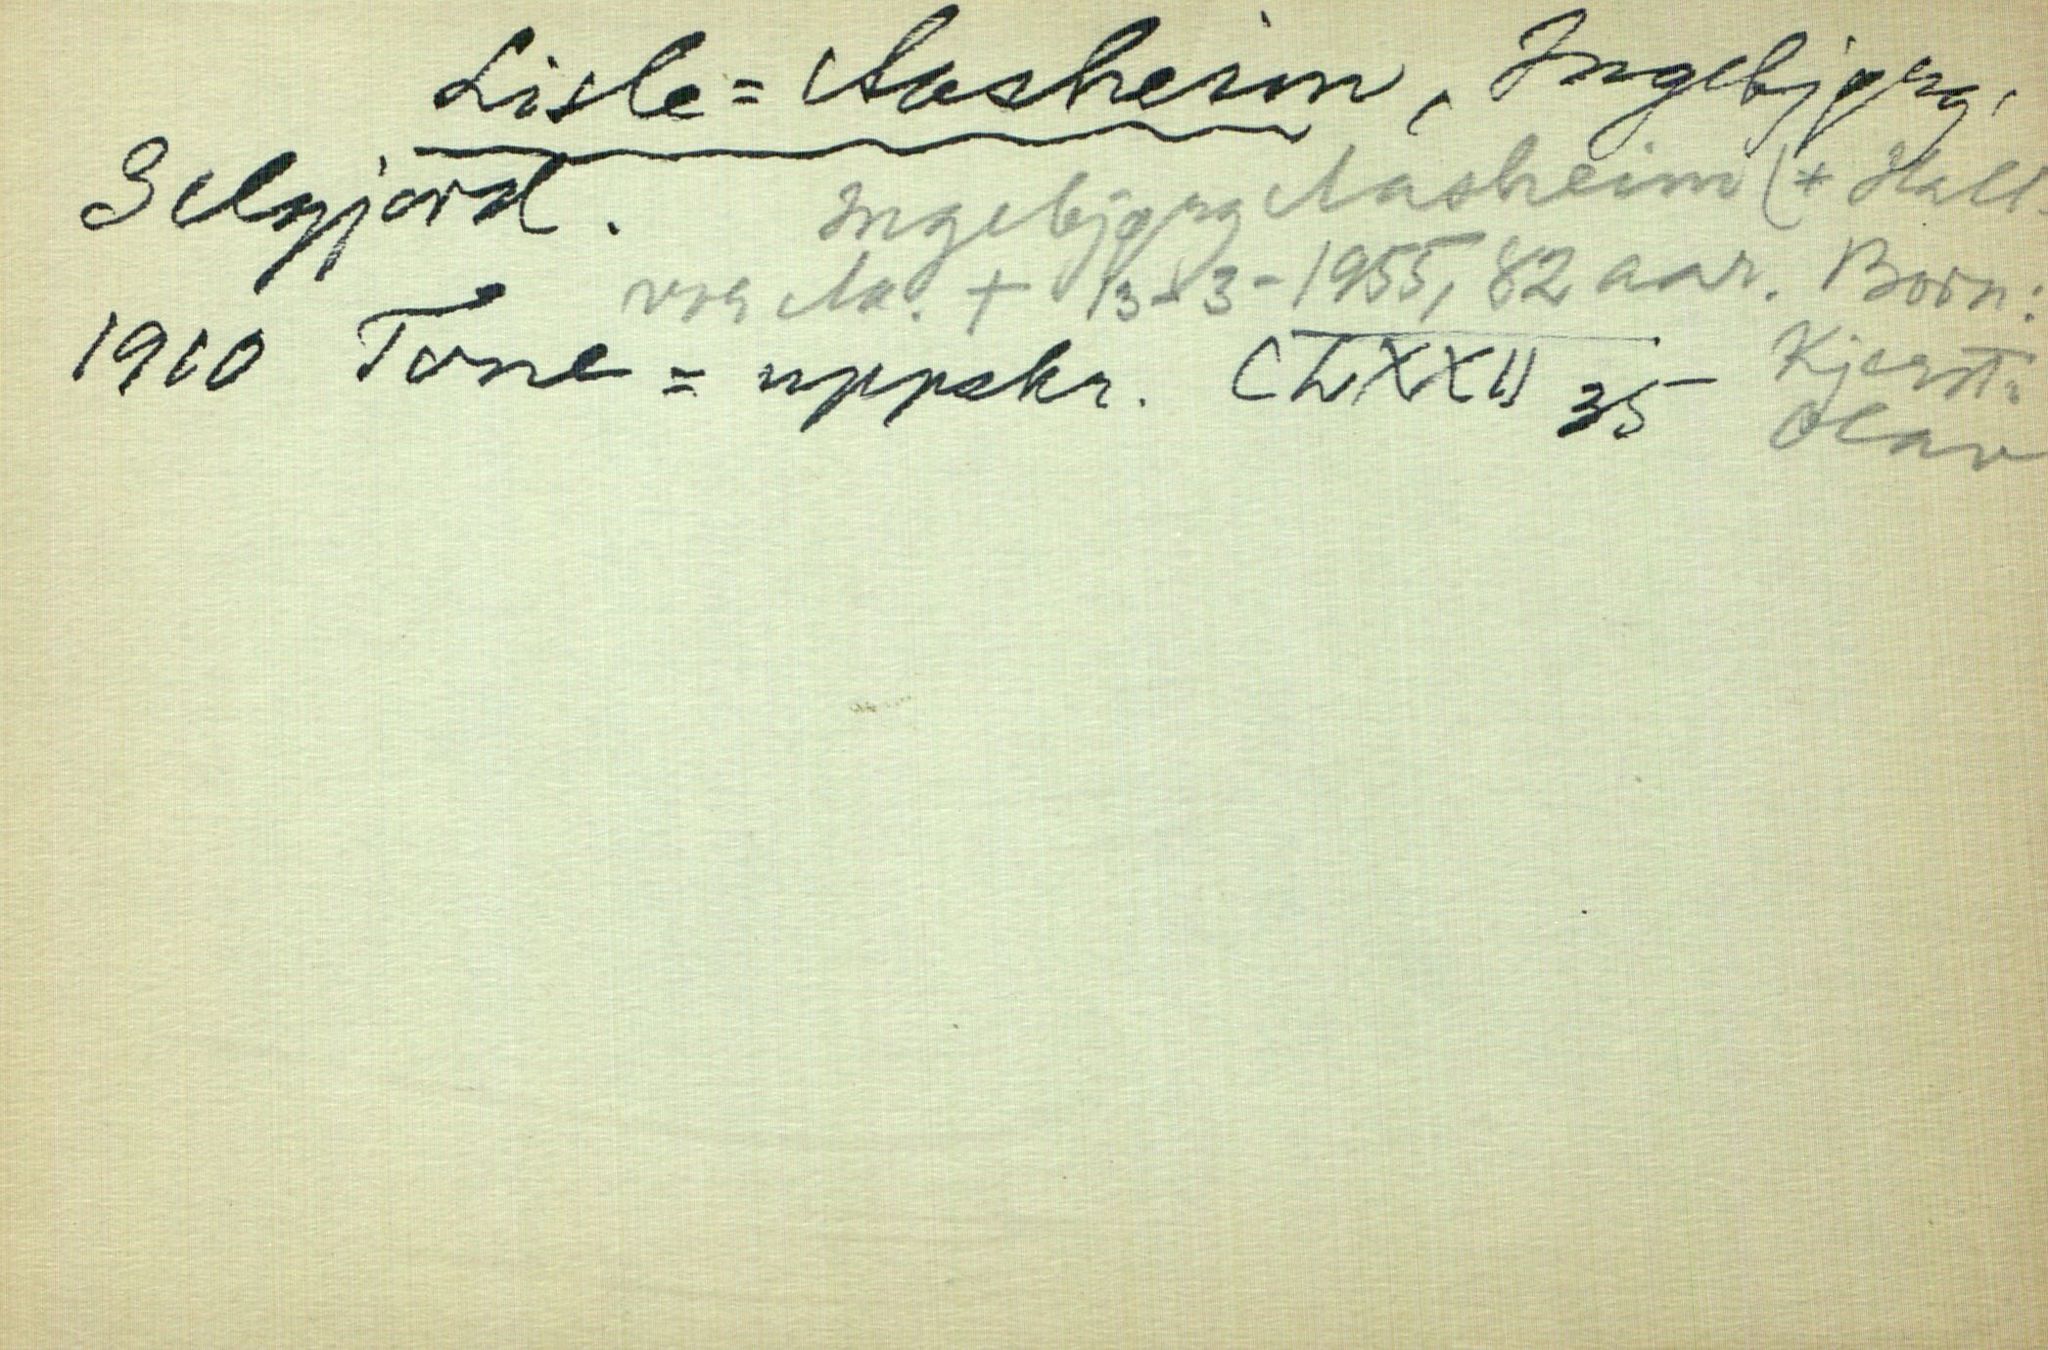 Lisle = Aasheim, Ingebjørg,
Selgjord.
Ingebjørg Aasheim (+ Hall-
vor Aa. + 13-3-1955, 82 aar. Born:
1910 Tone = uppskr. CLXXII 35
Kjersti
Olav